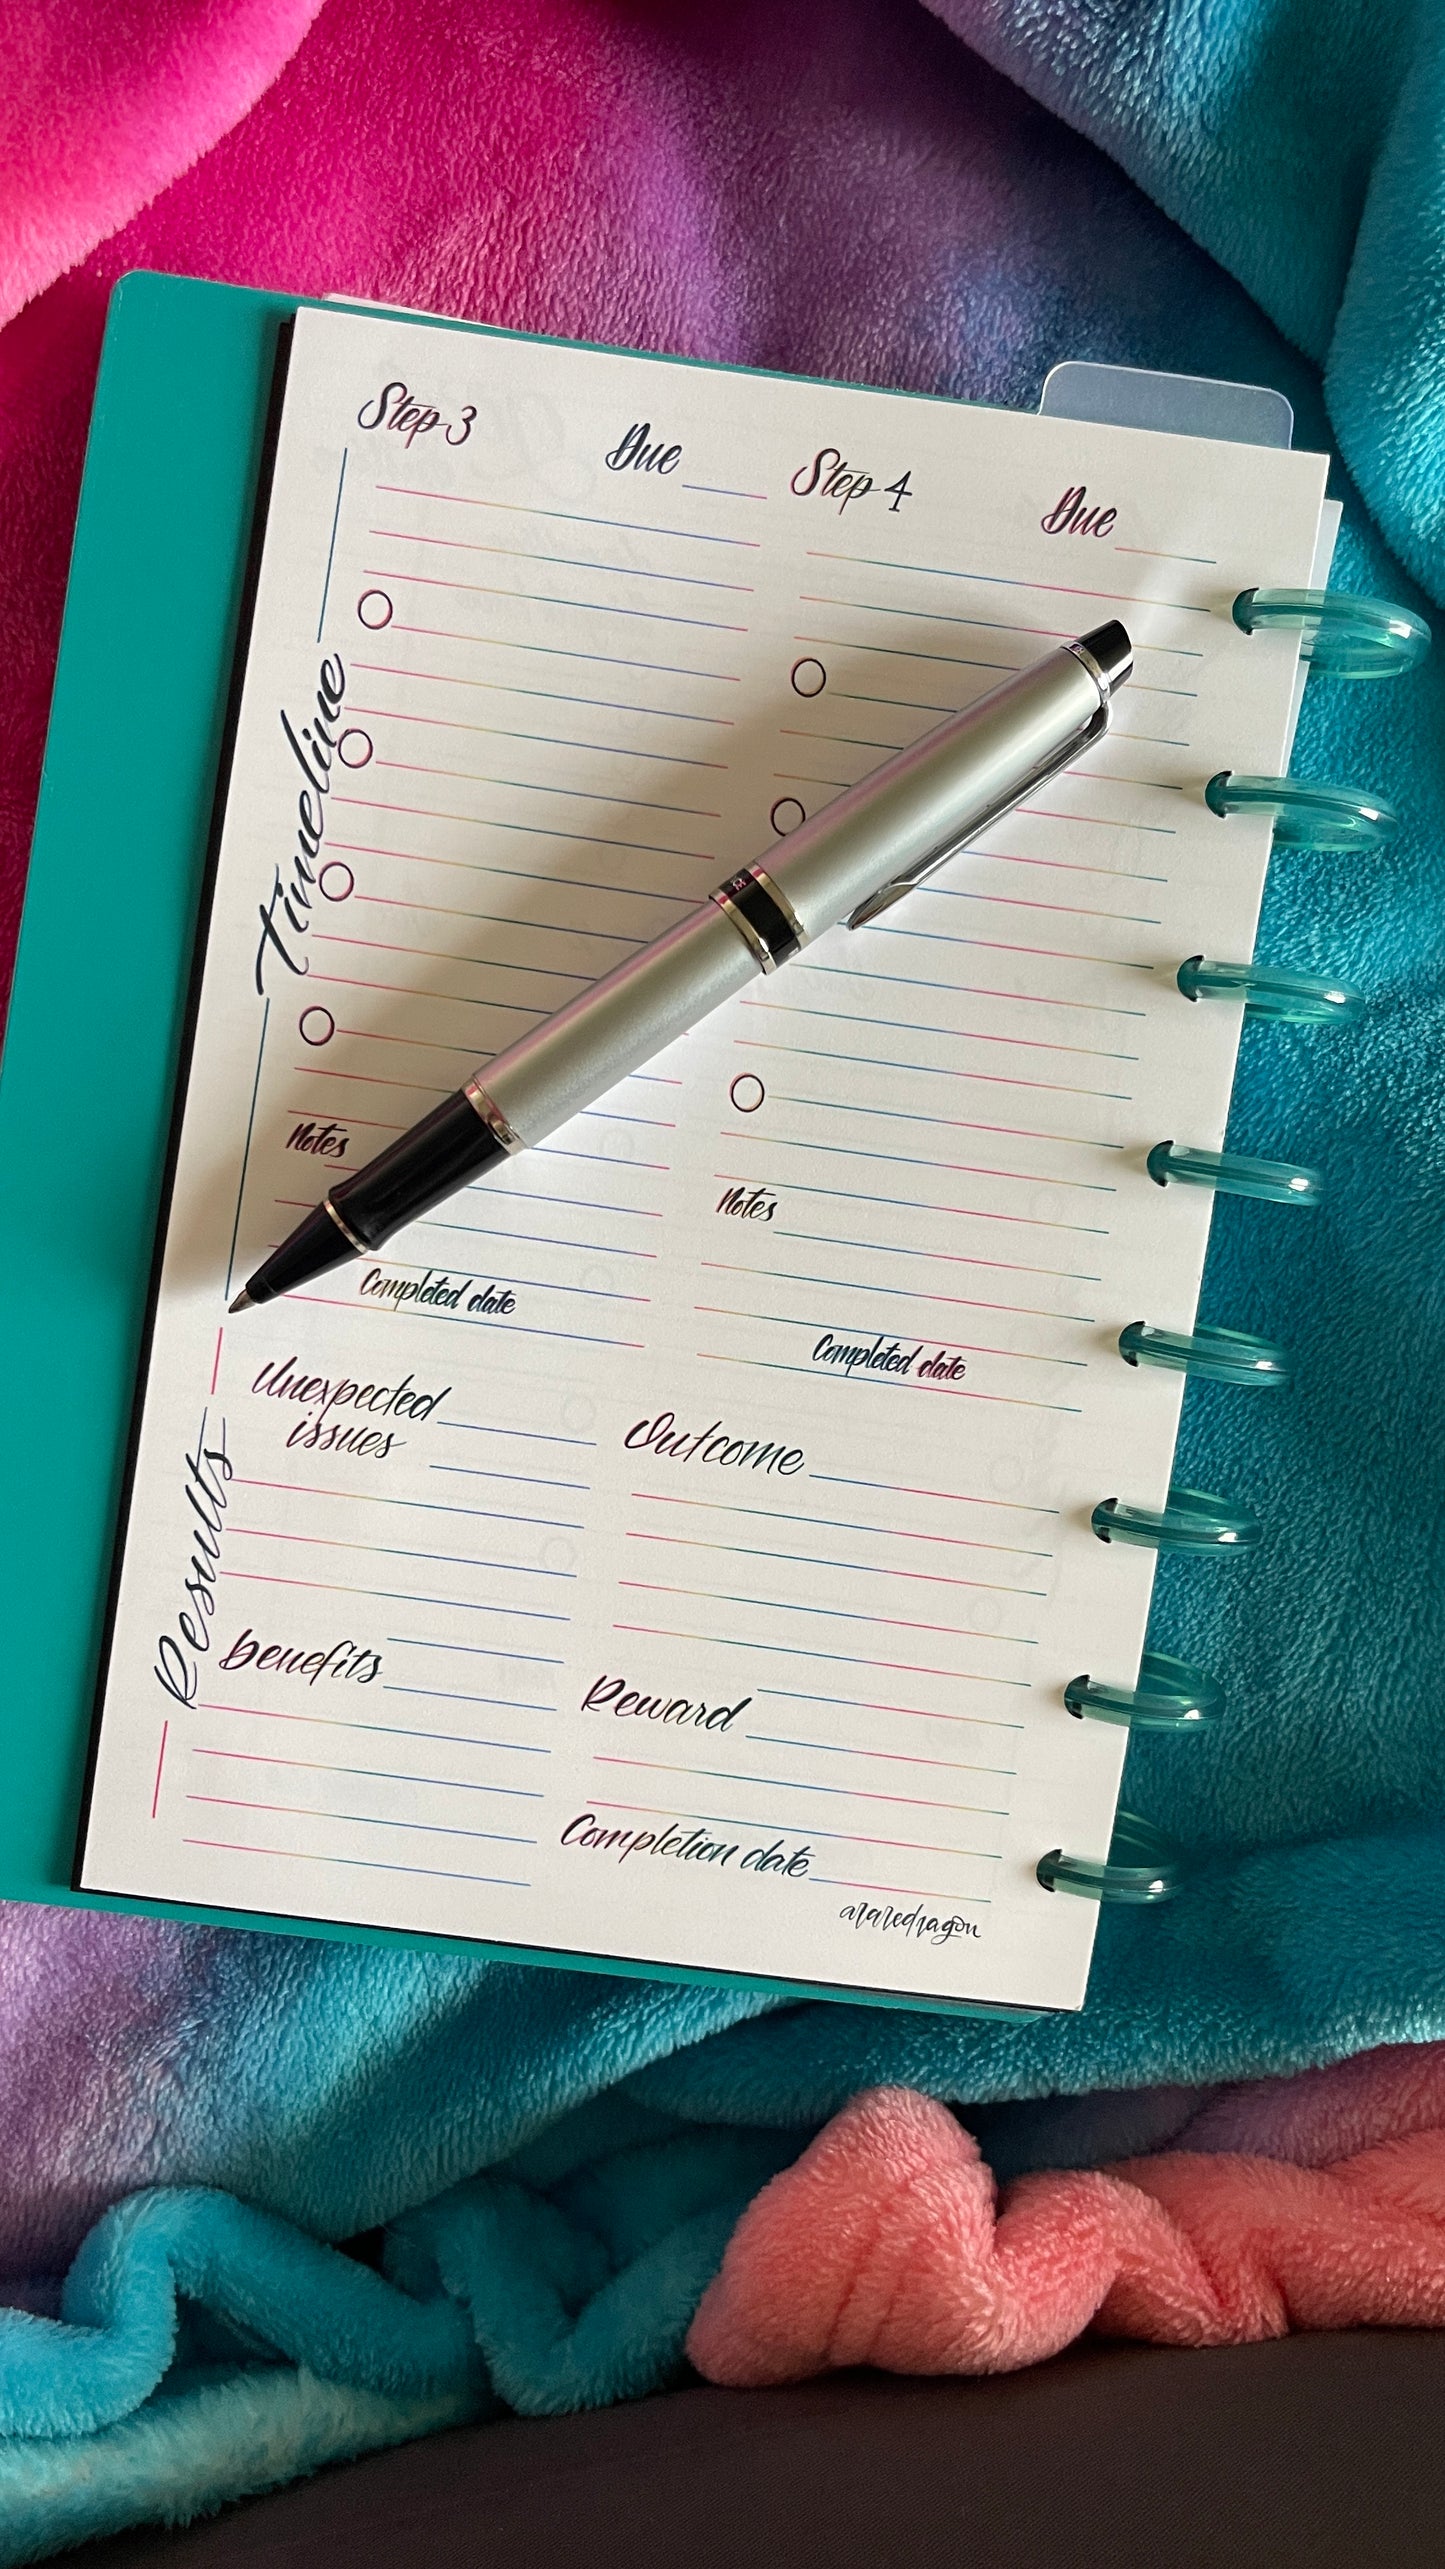 Step 3
Due
Step 4
Due
Timeline
Notes
Completed date
Notes
Completed date
Results
Unexpected
issues
Outcome
benefits
Reward
Completion date
araredragon